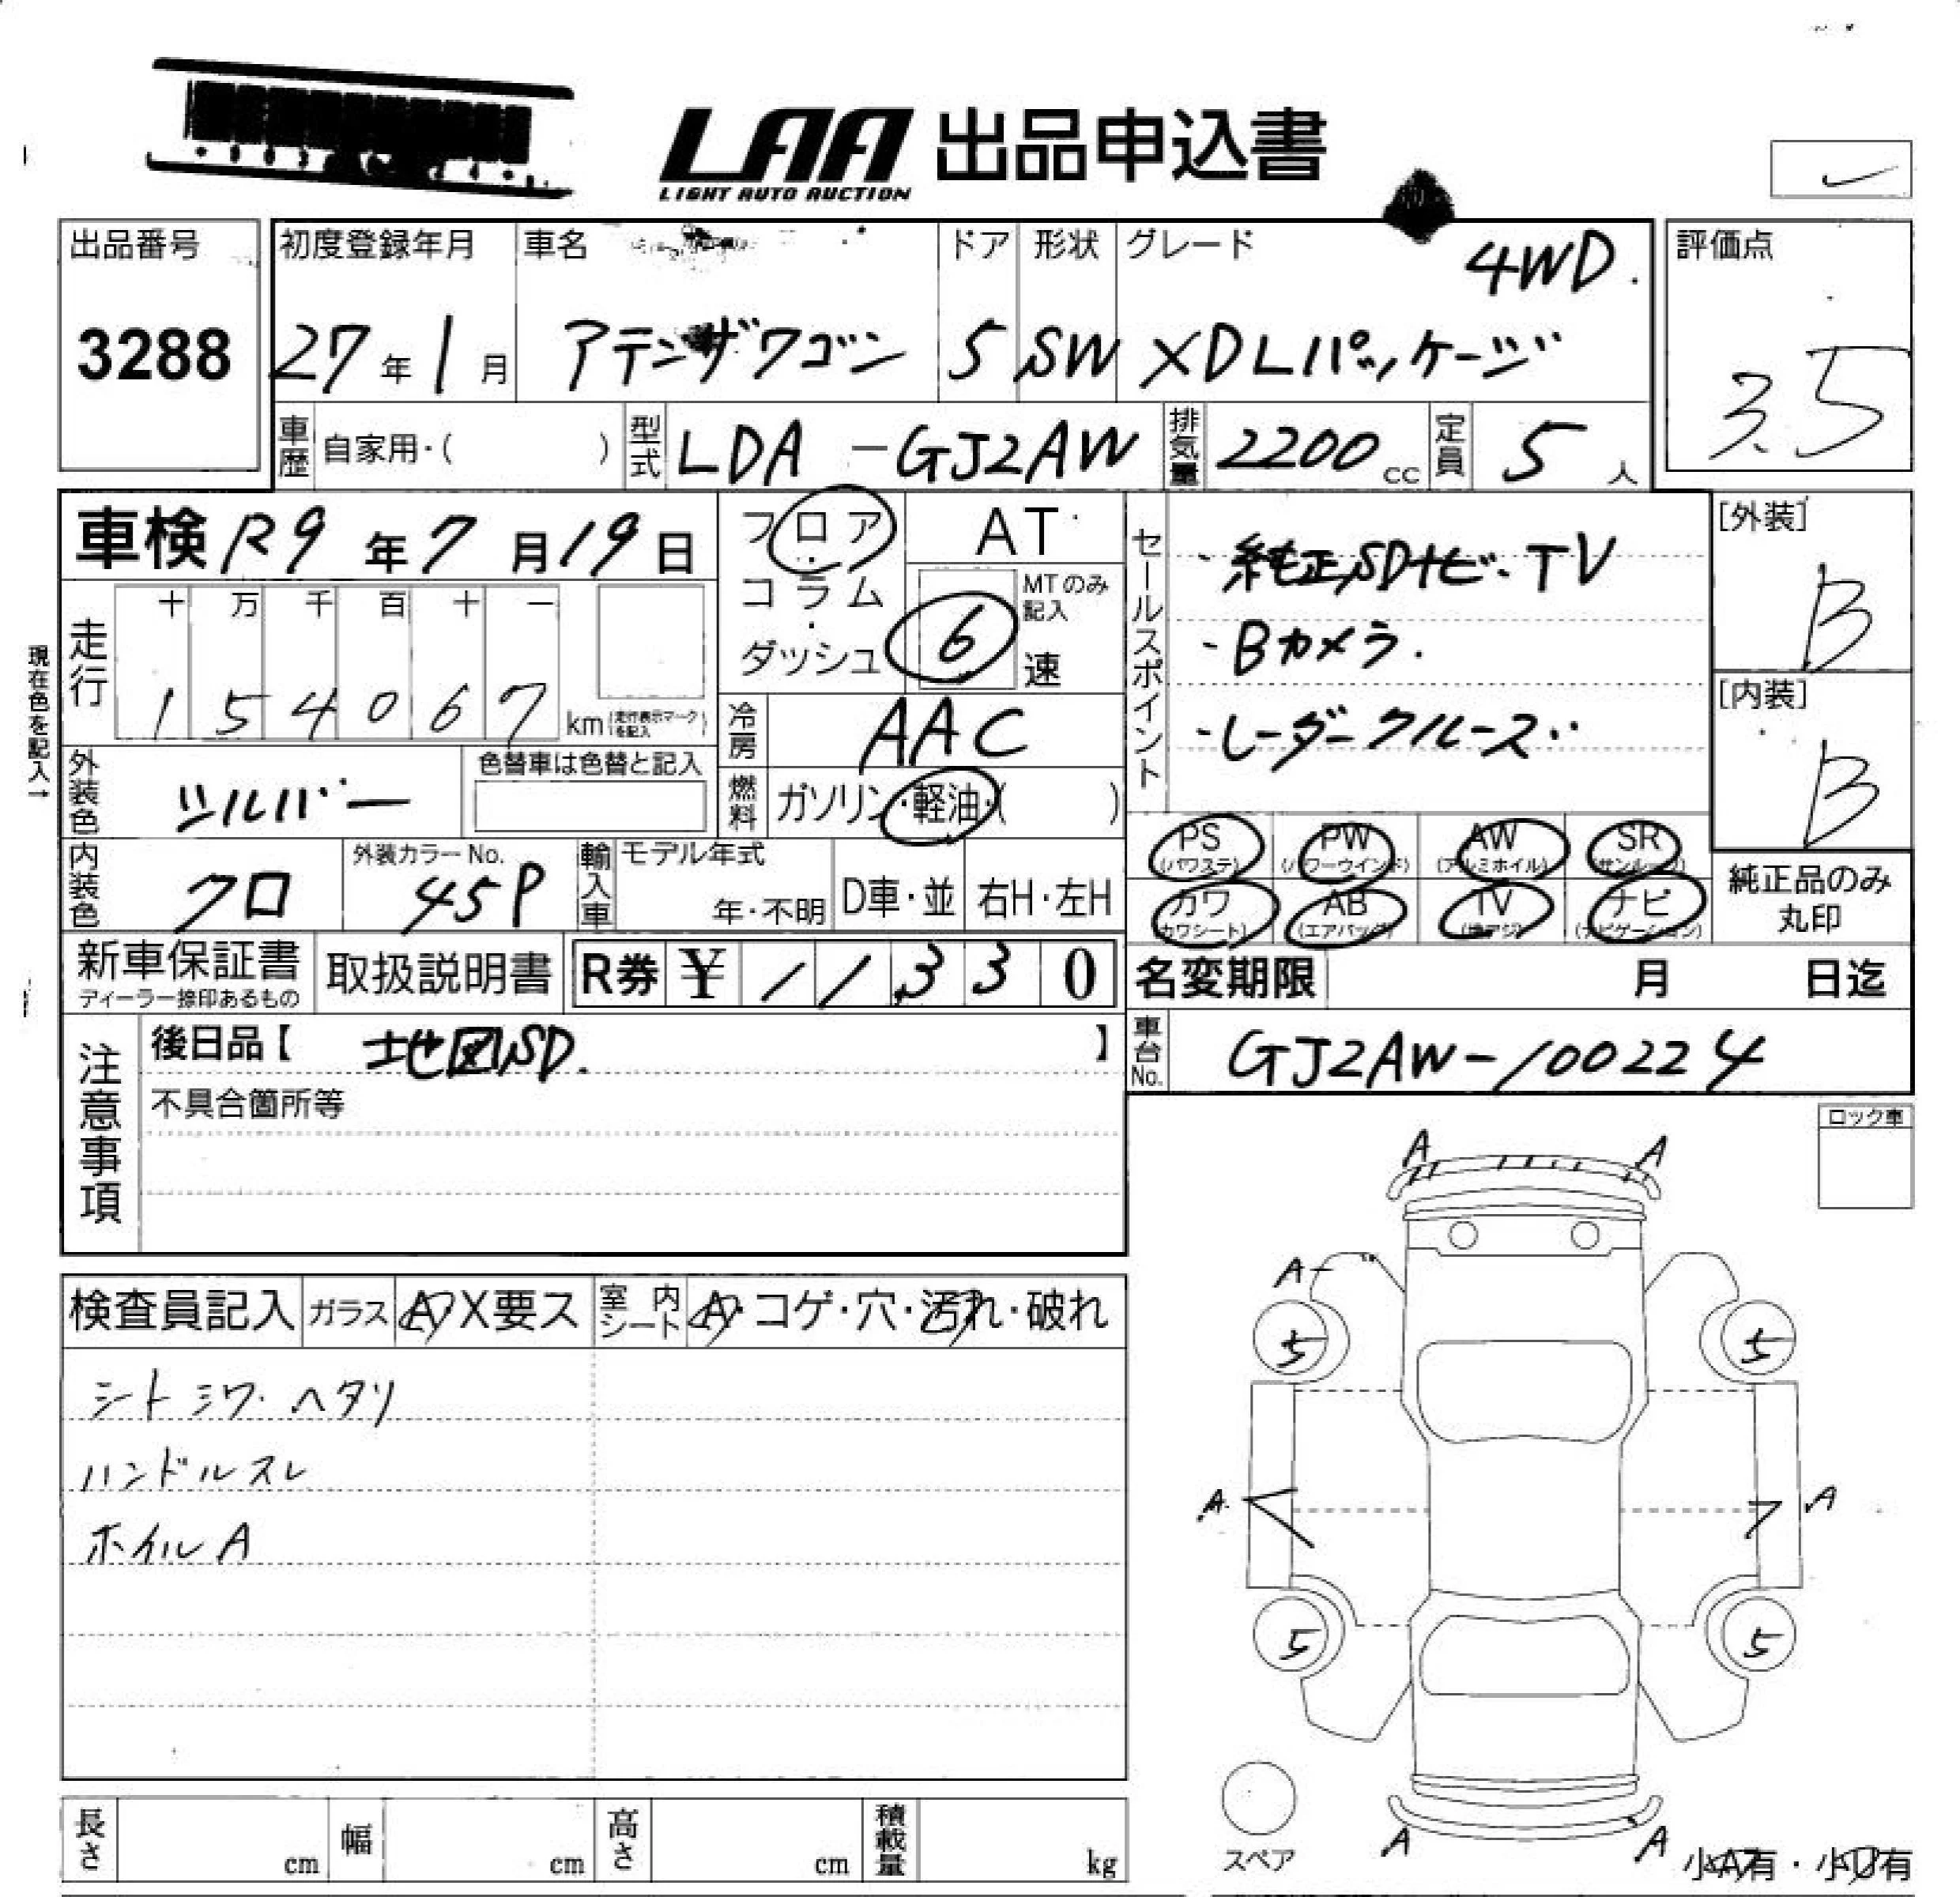 LAA 出品申込書
LIGHT AUTO AUCTION
出品番号
3288
初度登録年月
27年1月
車名
アテンザワゴン
ドア
5
形状
SW
グレード
4WD.
XD Lパッケージ
評価点
3.5
車歴 自家用・( )
型式 LDA-GJ2AW
排気量 2200cc
定員 5人
車検 R9年7月19日
フロア
コラム
ダッシュ
AT
6速
MTのみ記入
セールスポイント
・純正SDナビ・TV
・Bカメラ.
・レーダークルーズ
[外装]
B
[内装]
B
現在色を記入→
走行
十 万 千 百 十 一
1 5 4 0 6 7 km(走行表示マークを記入)
冷房 AAC
燃料 ガソリン・軽油・( )
外装色 シルバー
色替車は色替と記入
内装色 クロ
外装カラーNo.
45P
輸入車 モデル年式
年・不明
D車・並
右H・左H
PS (パワステ)
PW (パワーウインド)
AW (アルミホイル)
SR (サンルーフ)
カワ (カワシート)
AB (エアバッグ)
TV (地デジ)
ナビ (ナビゲーション)
純正品のみ丸印
新車保証書
ディーラー捺印あるもの
取扱説明書
R券 ¥11330
名変期限 月 日迄
車台No. GJ2AW-100224
注意事項
後日品【 地図SD. 】
不具合箇所等
ロック車
検査員記入
ガラス A X要ス
室内シート A・コゲ・穴・汚れ・破れ
シート シワ・ヘタリ
ハンドルスレ
ホイルA
A A
A
5 5
A A
5 5
A A
スペア
小A有・小U有
長さ cm
幅 cm
高さ cm
積載量 kg